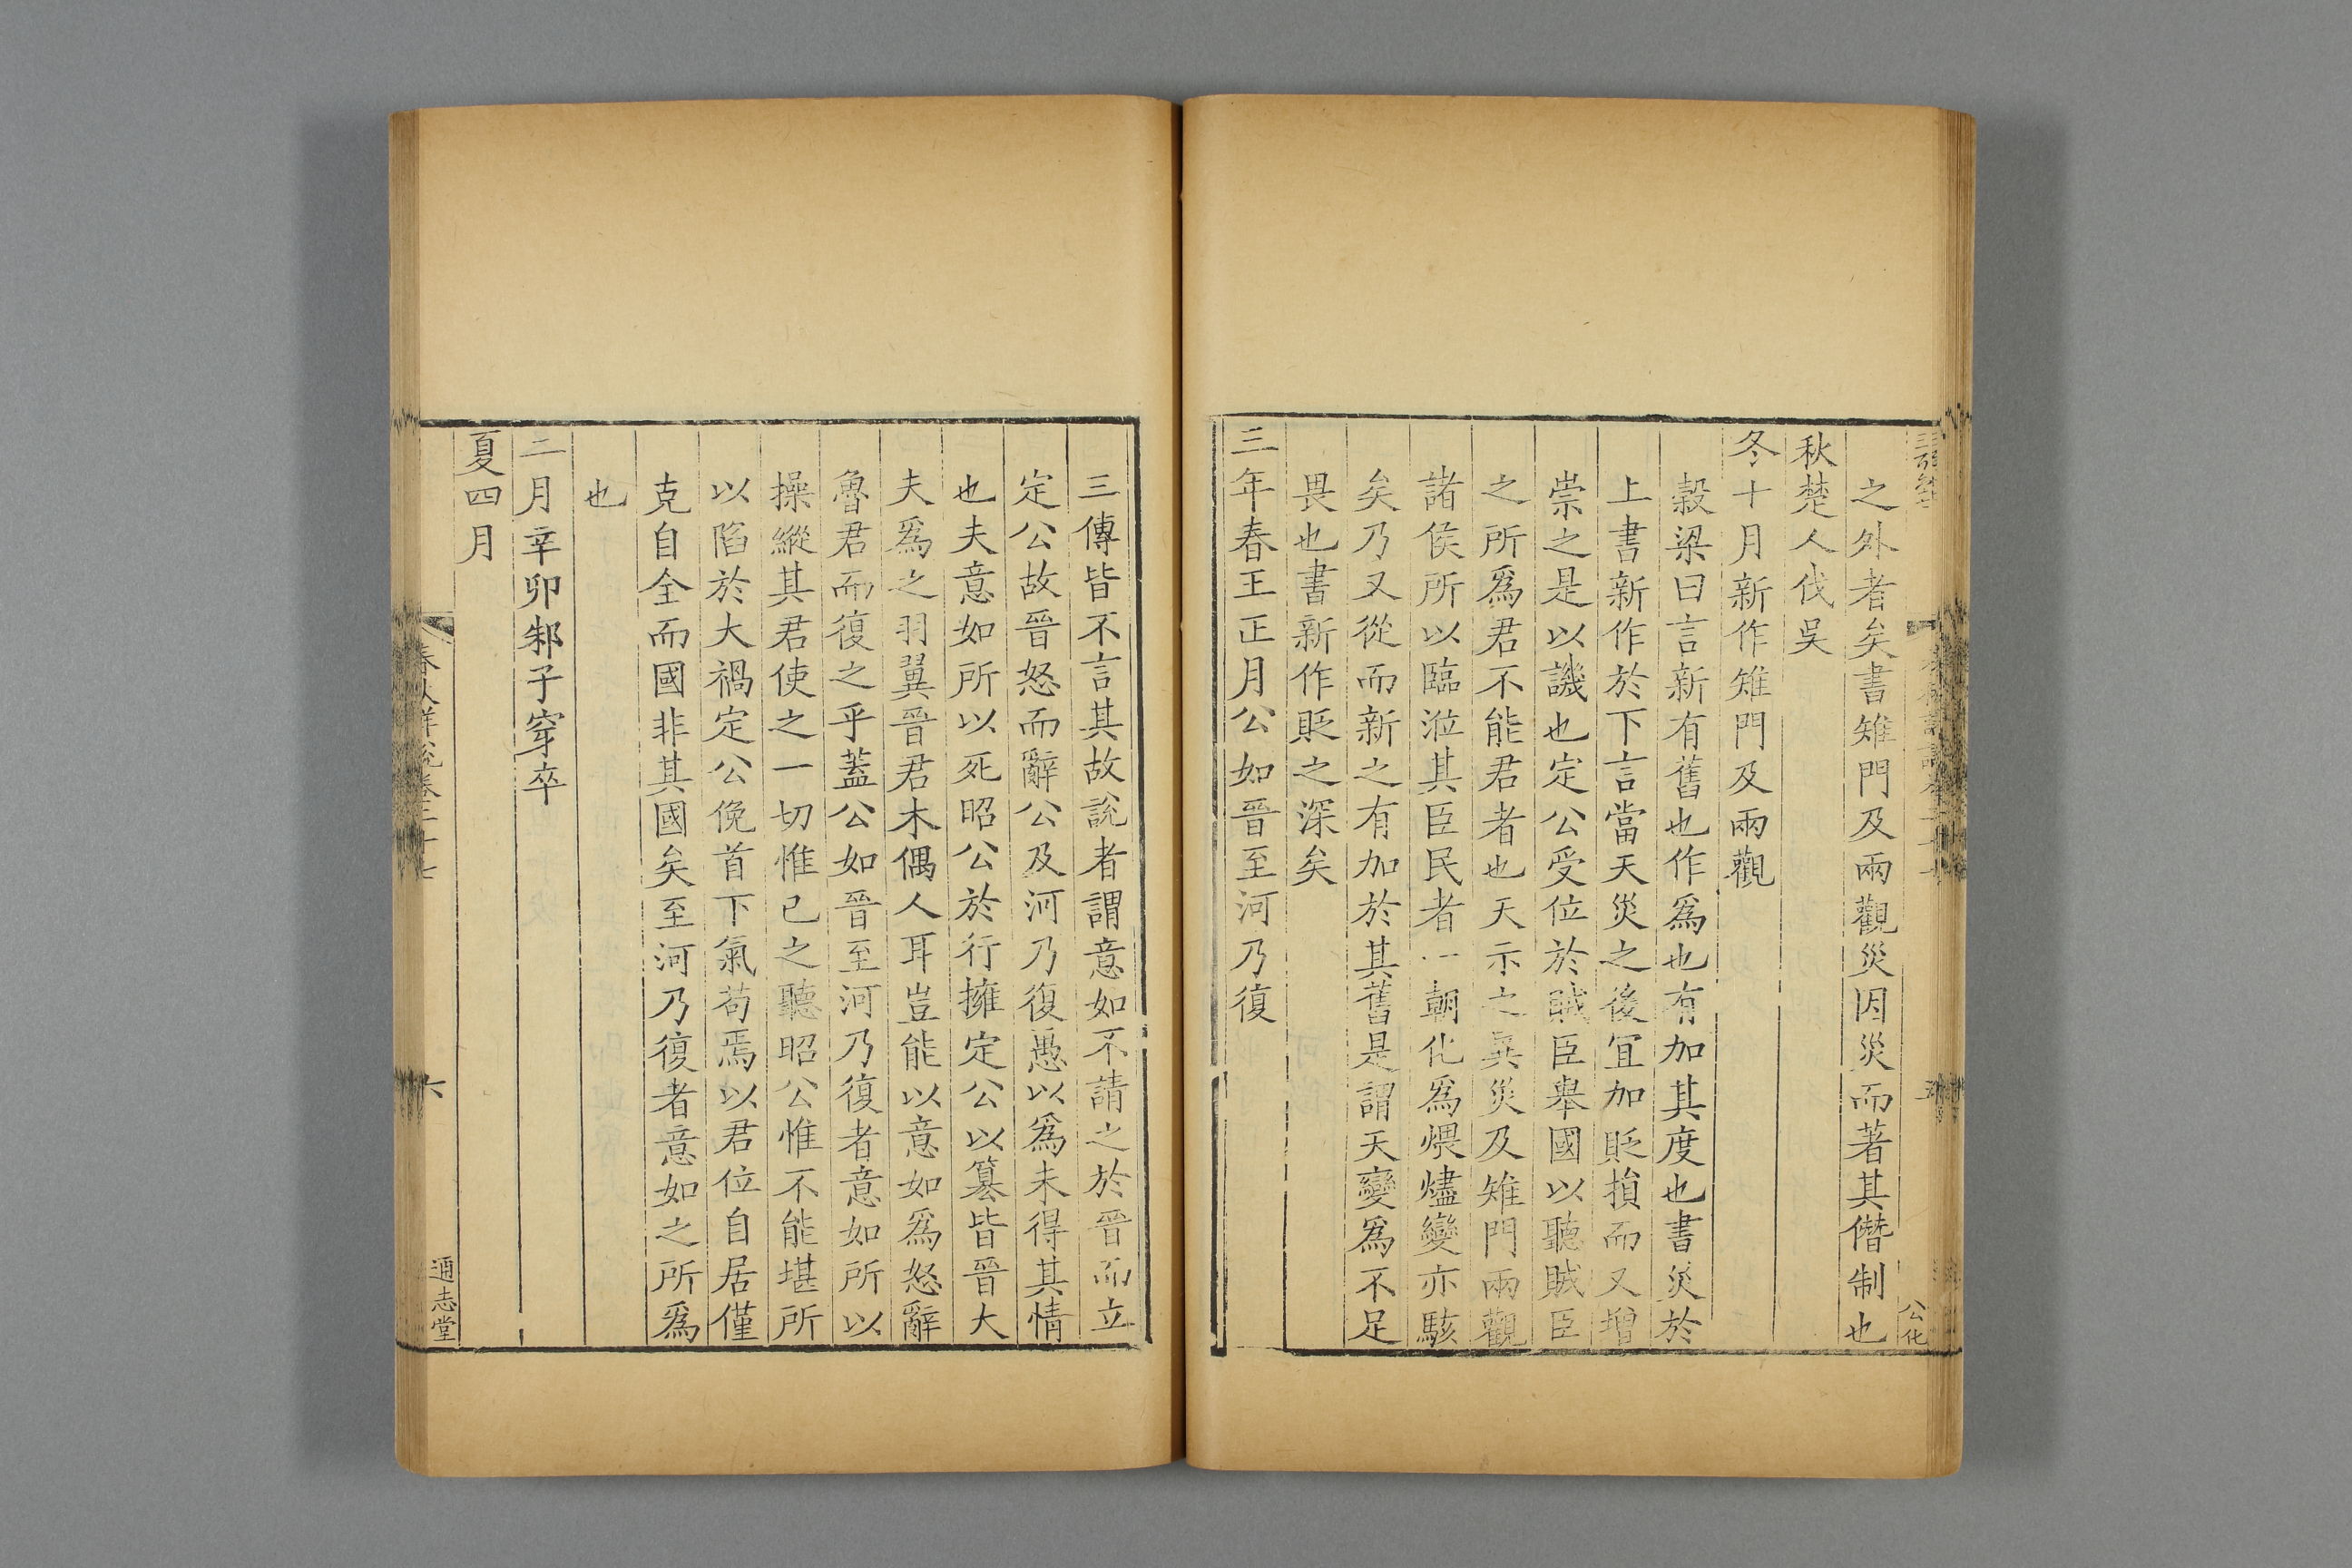 之外者矣書雉門及兩觀災因災而著其僭制也
秋楚人伐吳
冬十月新作雉門及兩觀
穀梁曰言新有舊也作爲也有加其度也書災於
上書新作於下言當天災之後宜加貶損而又增
崇之是以譏也定公受位於賊臣舉國以聽賊臣
之所爲君不能君者也天示之異災及雉門兩觀
諸侯所以臨涖其臣民者一朝化爲煨燼變亦駭
矣乃又從而新之有加於其舊是謂天變爲不足
畏也書新作貶之深矣
三年春王正月公如晉至河乃復
公化
三傳皆不言其故說者謂意如不請之於晉而立
定公故晉怒而辭公及河乃復愚以爲未得其情
也夫意如所以死昭公於行擁定公以簒皆晉大
夫爲之羽翼晉君木偶人耳豈能以意如爲怒辭
魯君而復之乎蓋公如晉至河乃復者意如所以
操縱其君使之一切惟己之聽昭公惟不能堪所
以陷於大禍定公俛首下氣苟焉以君位自居僅
克自全而國非其國矣至河乃復者意如之所爲
也
二月辛卯邾子穿卒
夏四月
春秋詳說卷二十七
六
通志堂